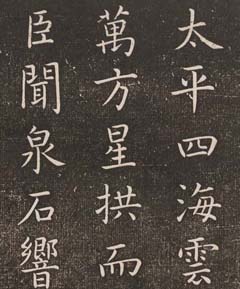 太平四海雲
萬方星拱而
臣聞泉石響